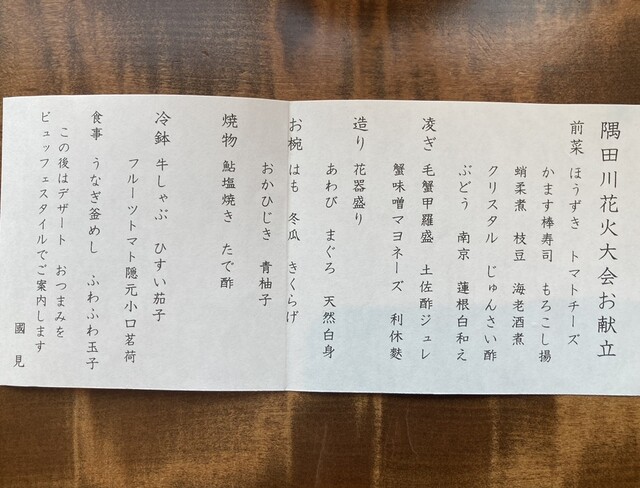 隅田川花火大会お献立
前菜 ほうずき トマトチーズ
かます棒寿司 もろこし揚
蛸柔煮 枝豆 海老酒煮
クリスタル じゅんさい酢
ぶどう 南京 蓮根白和え
凌ぎ 毛蟹甲羅盛 土佐酢ジュレ
蟹味噌マヨネーズ 利休麩
造り 花器盛り
あわび まぐろ 天然白身
お椀 はも 冬瓜 きくらげ
おかひじき 青柚子
焼物 鮎塩焼き たで酢
冷鉢 牛しゃぶ ひすい茄子
フルーツトマト隠元小口茗荷
食事 うなぎ釜めし ふわふわ玉子
この後はデザート おつまみを
ビュッフェスタイルでご案内します
國見